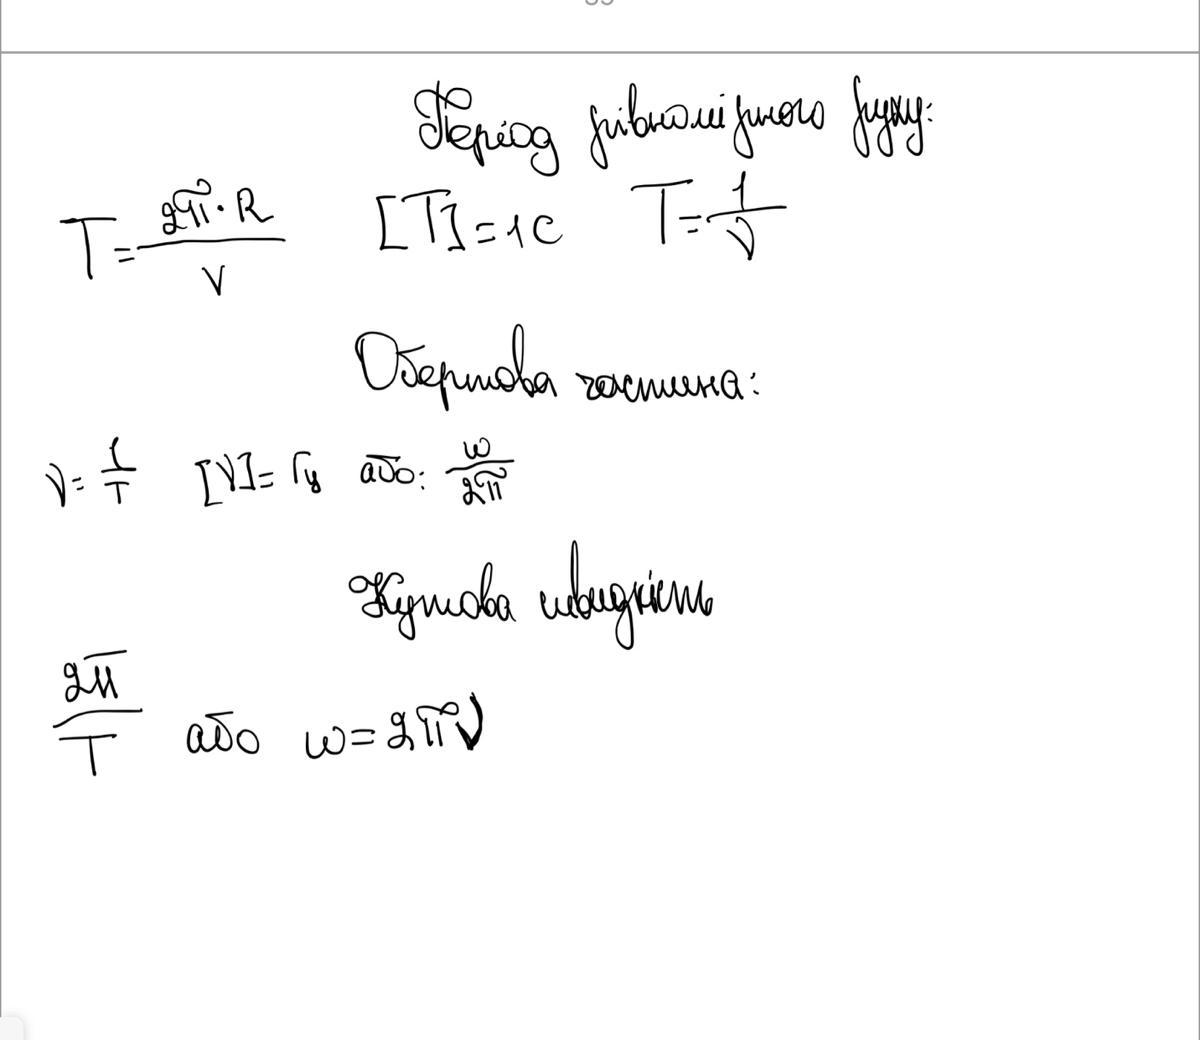 Період рівномірного руху:
T = 2π · R / v [T] = 1 c T = 1 / ν
Обертова частина:
ν = 1 / T [ν] = Гц або: ω / 2π
Кутова швидкість
2π / T або ω = 2πν